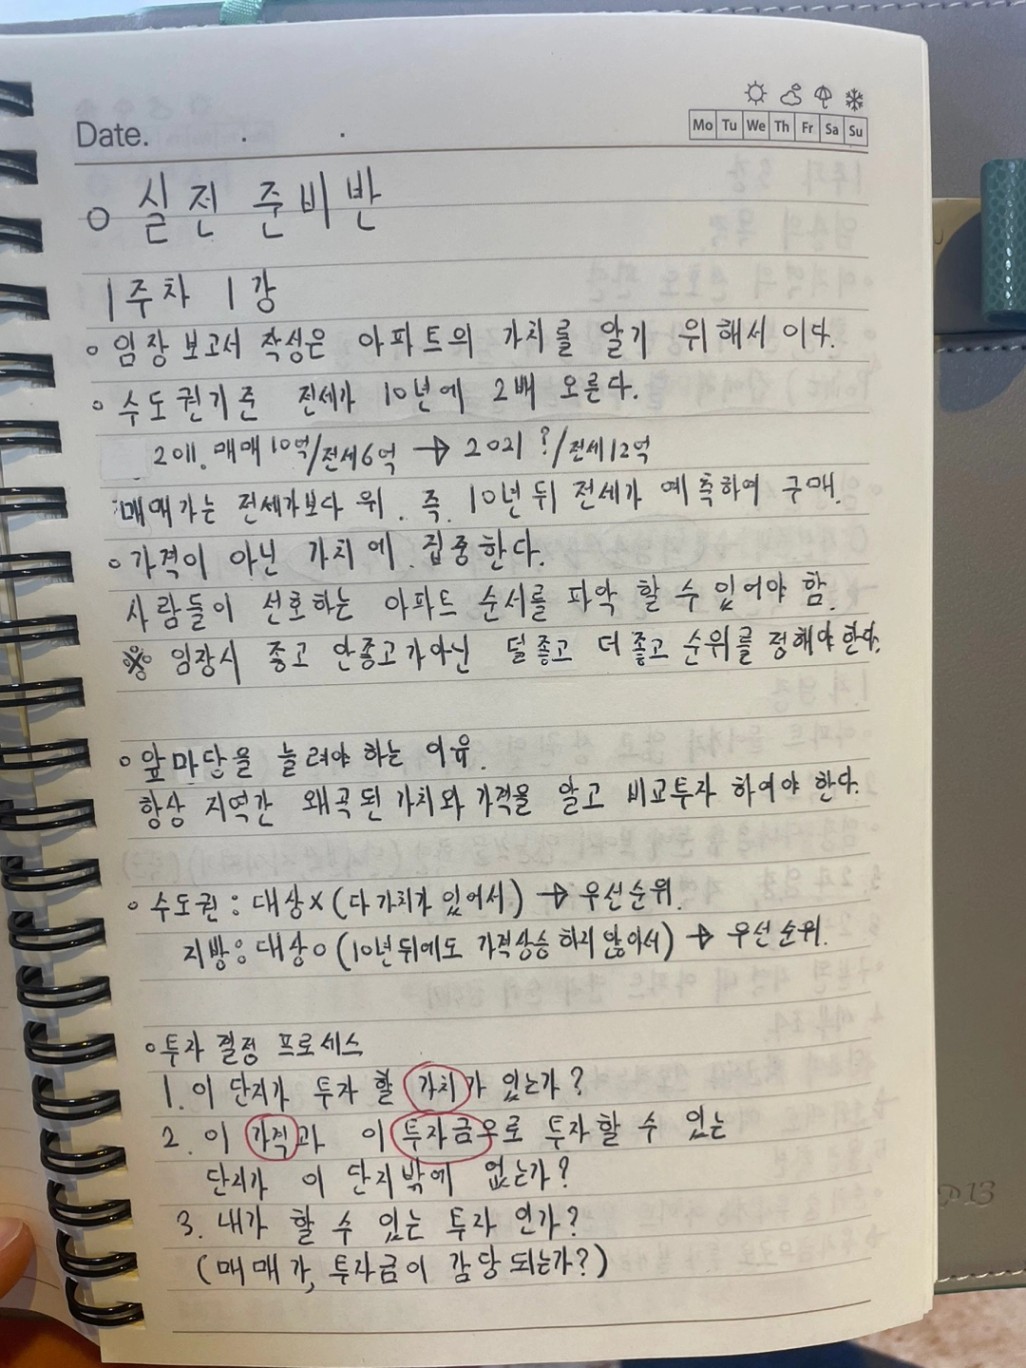 Date. . .
Mo Tu We Th Fr Sa Su
○ 실전 준비반
1주차 1강
○ 임장보고서 작성은 아파트의 가치를 알기 위해서 이다.
○ 수도권기준 전세가 10년에 2배 오른다.
2011. 매매10억/전세6억 → 2021 ?/전세12억
매매가는 전세가보다 위. 즉. 10년뒤 전세가 예측하여 구매.
○ 가격이 아닌 가치에 집중한다.
사람들이 선호하는 아파트 순서를 파악 할 수 있어야 함.
※ 임장시 좋고 안좋고가아닌 덜좋고 더좋고 순위를 정해야한다.
○ 앞마당을 늘려야 하는 이유.
항상 지역간 왜곡된 가치와 가격을 알고 비교투자 하여야 한다.
○ 수도권 : 대상× (다 가치가 있어서) → 우선순위.
지방 : 대상○ (10년뒤에도 가격상승 하지 않아서) → 우선순위.
○ 투자 결정 프로세스
1. 이 단지가 투자 할 가치가 있는가?
2. 이 가격과 이 투자금으로 투자할 수 있는
단지가 이 단지밖에 없는가?
3. 내가 할 수 있는 투자 인가?
(매매가, 투자금이 감당 되는가?)